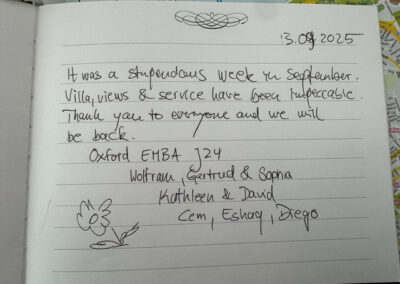 13.09.2025
It was a stupendous week in September.
Villa, views & service have been impeccable.
Thank you to everyone and we will
be back.
Oxford EMBA J24
Wolfram, Gertrud & Sophia
Kathleen & David
Cem, Eshaq, Diego